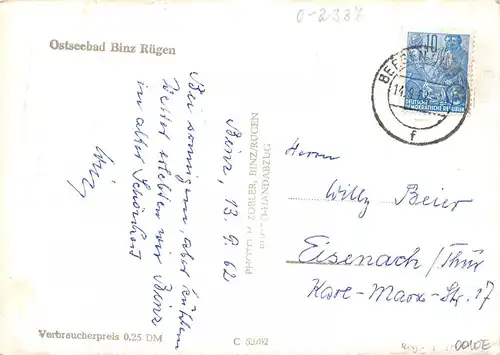 0-2337
Ostseebad Binz Rügen
Binz, 13. 9. 62
Bei sonnigem, aber kühlem
Wetter erlebten wir Binz
in alter Schönheit
PHOTO M. ZOBLER, BINZ/RÜGEN
PHOTO-HANDABZUG
10
DEUTSCHE
DEMOKRATISCHE REPUBLIK
BERGEN
14.9.
f
Herrn
Willy Beier
Eisenach/Thür
Karl-Marx-Str. 17
Verbraucherpreis 0,25 DM
C 52/62